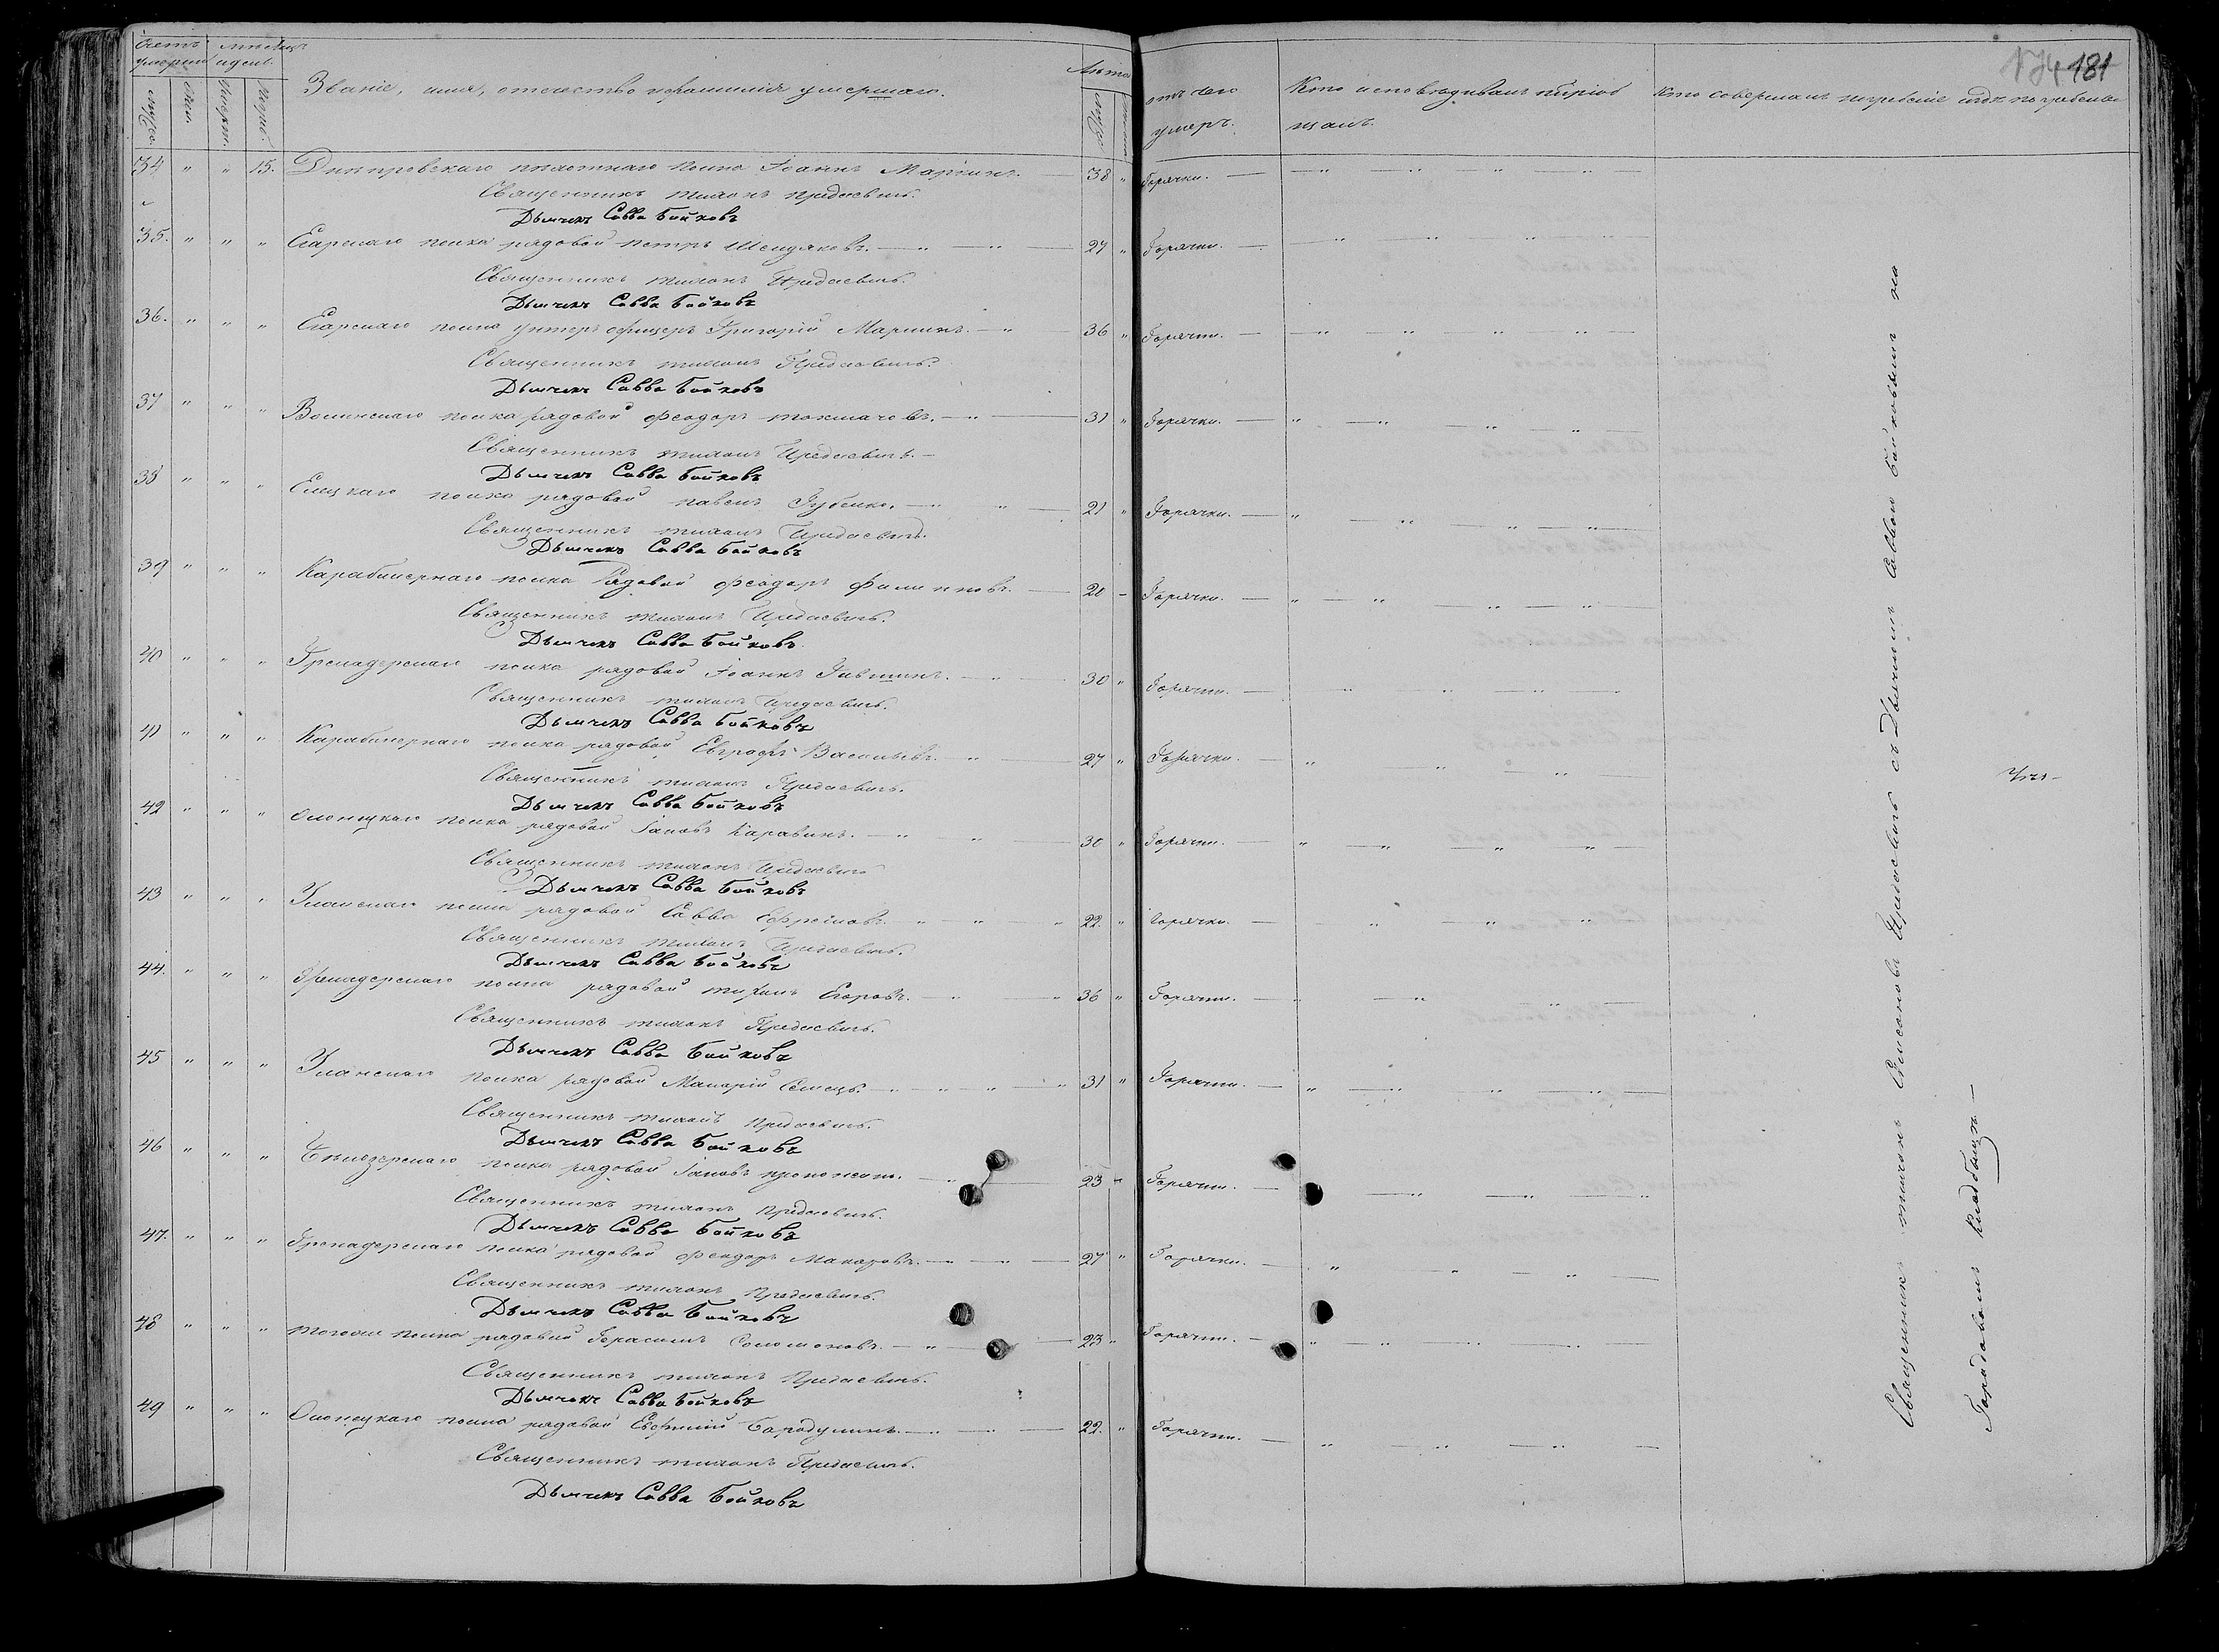 181
Счетъ умерших мѣсяцъ и день.
Званіе, имя, отечество и фамилія умершаго.
Лѣта
отъ чего умеръ.
Кто исповѣдывалъ и пріобщалъ.
Кто совершалъ погребеніе и гдѣ погребены
мужес. жен. Мужеск. женск.
34 " " 15. Днѣпровскаго пѣхотнаго полка Іоаннъ Маркинъ. 38 " Горячки.
Священникъ Предаевичь.
Дьячекъ Савва Бойковъ
35. " " " Егарскаго полка рядовой Петръ Шендяковъ. 27 " Горячки.
Священникъ Предаевичь.
Дьячекъ Савва Бойковъ
36. " " " Егарскаго полка унтеръ офицеръ Григорій Маркинъ. 36 " Горячки.
Священникъ Предаевичь.
Дьячекъ Савва Бойковъ
37 " " " Волинскаго полка рядовой Феодоръ Токмачовъ. 31 " Горячки.
Священникъ Предаевичь.
Дьячекъ Савва Бойковъ
38 " " " Елецкаго полка рядовой Павелъ Губенко. 21 " Горячки.
Священникъ Предаевичь.
Дьячекъ Савва Бойковъ
39 " " " Карабинернаго полка Рядовой Феодоръ Филиповъ. 20 - Горячки.
Священникъ Предаевичь.
Дьячекъ Савва Бойковъ
40 " " " Гренадерскаго полка рядовой Іоаннъ Гавшинъ. 30 " Горячки.
Священникъ Предаевичь.
Дьячекъ Савва Бойковъ
41 " " " Карабинернаго полка рядовой Васильевъ. 27 " Горячки.
Священникъ Предаевичь.
Дьячекъ Савва Бойковъ
42 " " " Олонецкаго полка рядовой Іаковъ Каравинъ. 30 " Горячки.
Священникъ Предаевичь
Дьячекъ Савва Бойковъ
43 " " " Уланскаго полка рядовой Савва Ефремовъ. 22. " Горячки.
Священникъ Предаевичь.
Дьячекъ Савва Бойковъ
44. " " " Гренадерскаго полка рядовой Тихонъ Егоровъ. 36 " Горячки.
Священникъ Предаевичь.
Дьячекъ Савва Бойковъ
45 " " " Уланскаго полка рядовой Макарій Семецъ. 31 " Горячки.
Священникъ Предаевичь.
Дьячекъ Савва Бойковъ
46 " " " полка рядовой Іаковъ 23 " Горячки.
Священникъ Предаевичь.
Дьячекъ Савва Бойковъ
47. " " " Гренадерскаго полка рядовой Феодоръ Макаровъ. 27 " Горячки.
Священникъ Предаевичь.
Дьячекъ Савва Бойковъ
48 " " " тогоже полка рядовой Герасимъ Соломоновъ. 23 " Горячки.
Священникъ Предаевичь.
Дьячекъ Савва Бойковъ
49 " " " Олонецкаго полка рядовой Евфимій Бародулинъ. 22. " Горячки.
Священникъ Предаевичь.
Дьячекъ Савва Бойковъ
Священникъ Предаевичь съ Дьячкомъ Саввою Бойковымъ на
Гарадовомъ кладбищѣ.